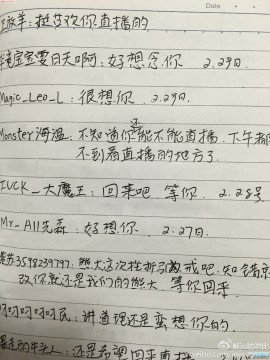 Date
放羊:挺喜欢你直播的
宝宝要日天啊:好想念你 2.29日
Magic_Leo_L:很想你. 2.29日.
Monster海漫:不知道你还能不能直播.下午都
不到看直播的地方了
FUCK_大魔王:回来吧 等你. 2.28号
Mr_All先森:好想你. 2.27日.
3598239797:熊大这次挫折 教戒吧.知错就
改你就还是我们的熊大 等你回来
呵呵呵呵呵:讲道理还是蛮想你的.
的牛头人:还是希望回来直播